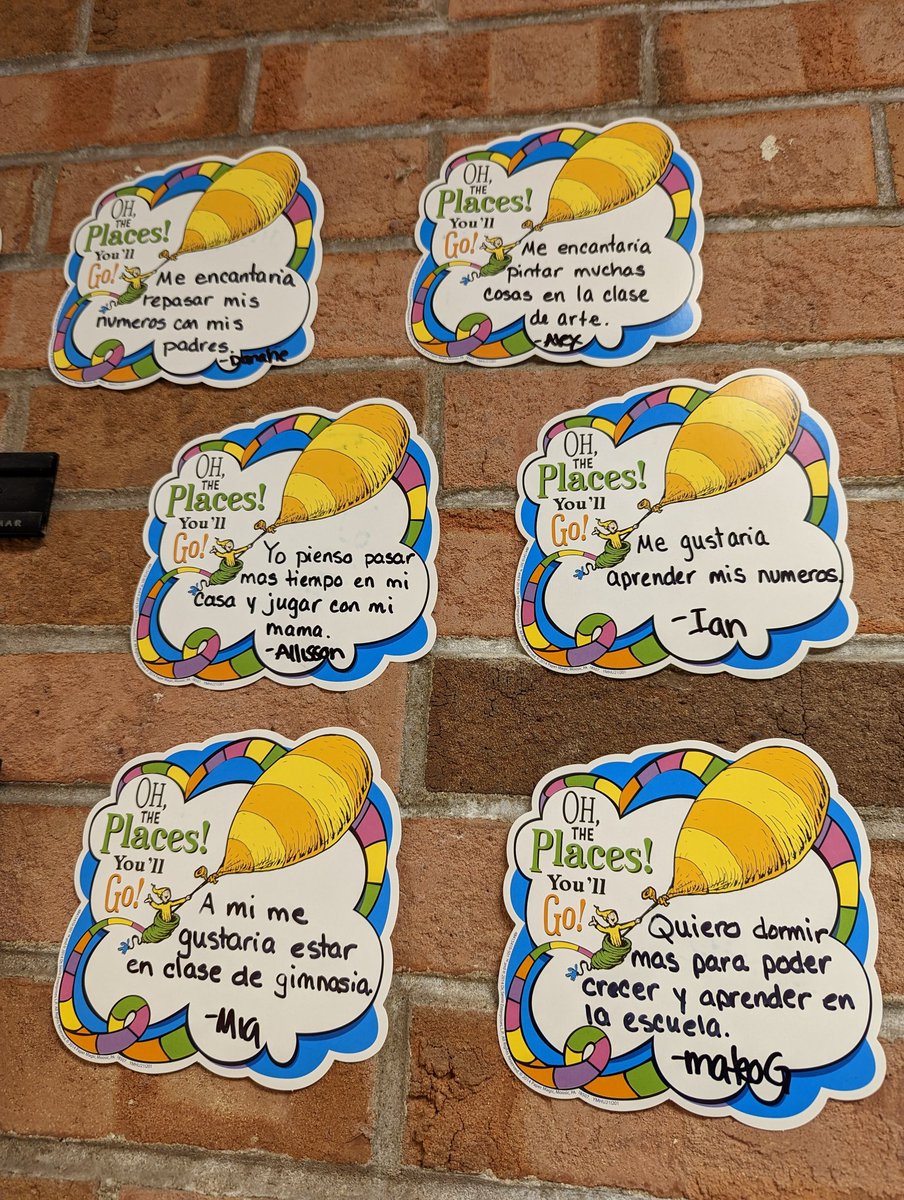 OH,
THE
Places!
You'll
Go!
Me encantaria
repasar mis
numeros con mis
padres.
OH,
THE
Places!
You'll
Go!
Me encantaria
pintar muchas
cosas en la clase
de arte.
-Alex
OH,
THE
Places!
You'll
Go!
Yo pienso pasar
mas tiempo en mi
casa y jugar con mi
mama.
-Allisson
OH,
THE
Places!
You'll
Go!
Me gustaria
aprender mis numeros.
-Ian
OH,
THE
Places!
You'll
Go!
A mi me
gustaria estar
en clase de gimnasia.
-Mia
OH,
THE
Places!
You'll
Go!
Quiero dormir
mas para poder
crecer y aprender en
la escuela.
-makoG